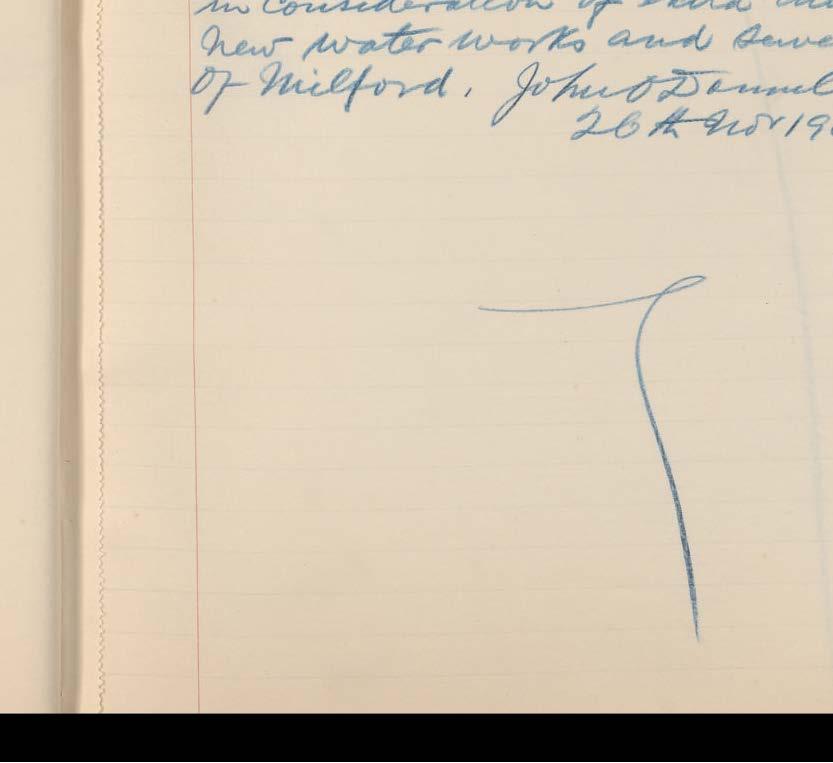 in consideration of
new water works and
of Milford. John O Donnel
26th Nov 19